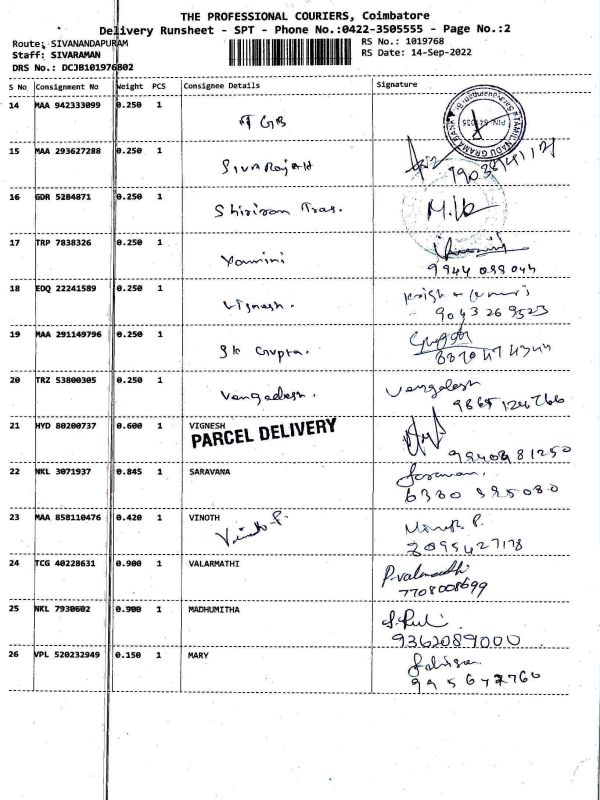 THE PROFESSIONAL COURIERS, Coimbatore
Delivery Runsheet - SPT - Phone No.:0422-3505555 - Page No.:2
Route: SIVANANDAPURAM
RS No.: 1019768
Staff: SIVARAMAN
RS Date: 14-Sep-2022
DRS No.: DCJB101976802
S No Consignment No Weight PCS Consignee Details Signature
14 MAA 942333099 0.250 1 GB
15 MAA 293627288 0.250 1 SIVARajAH
16 GDR 5284871 0.250 1 Shriram Tras.
17 TRP 7838326 0.250 1 Yamini
9944 099044
18 EDQ 22241589 0.250 1 Vignesh.
9043 269523
19 MAA 291149796 0.250 1 SK Gupta. Gupta
20 TRZ 53800305 0.250 1 Vengadesh. Vengadesh
9865 124766
21 HYD 80200737 0.600 1 VIGNESH
PARCEL DELIVERY
9940881250
22 NKL 3071937 0.845 1 SARAVANA Saravan.
6380 995080
23 MAA 858110476 0.420 1 VINOTH
Vinoth P.
8095427178
24 TCG 40228631 0.900 1 VALARMATHI P.valarmathi
7708008699
25 NKL 7930602 0.900 1 MADHUMITHA
9362089000
26 VPL 520232949 0.150 1 MARY